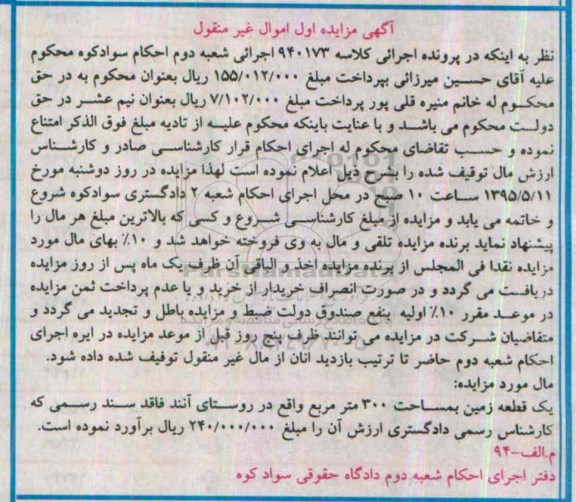 آگهی مزایده اول اموال غیر منقول
نظر به اینکه در پرونده اجرائی کلاسه ۹۴۰۱۷۳ اجرائی شعبه دوم احکام سوادکوه محکوم
علیه آقای حسین میرزائی بپرداخت مبلغ ۱۵۵/۰۱۲/۰۰۰ ریال بعنوان محکوم به در حق
محکوم له خانم منیره قلی پور پرداخت مبلغ ۷/۱۰۲/۰۰۰ ریال بعنوان نیم عشر در حق
دولت محکوم می باشد و با عنایت باینکه محکوم علیه از تادیه مبلغ فوق الذکر امتناع
نموده و حسب تقاضای محکوم له اجرای احکام قرار کارشناسی صادر و کارشناس
ارزش مال توقیف شده را بشرح ذیل اعلام نموده است لهذا مزایده در روز دوشنبه مورخ
۱۳۹۵/۵/۱۱ ساعت ۱۰ صبح در محل اجرای احکام شعبه ۲ دادگستری سوادکوه شروع
و خاتمه می یابد و مزایده از مبلغ کارشناسی شروع و کسی که بالاترین مبلغ هر مال را
پیشنهاد نماید برنده مزایده تلقی و مال به وی فروخته خواهد شد و ۱۰٪ بهای مال مورد
مزایده نقدا فی المجلس از برنده مزایده اخذ و الباقی آن ظرف یک ماه پس از روز مزایده
دریافت می گردد و در صورت انصراف خریدار از خرید و یا عدم پرداخت ثمن مزایده
در موعد مقرر ۱۰٪ اولیه بنفع صندوق دولت ضبط و مزایده باطل و تجدید می گردد و
متقاضیان شرکت در مزایده می توانند ظرف پنج روز قبل از موعد مزایده در ایره اجرای
احکام شعبه دوم حاضر تا ترتیب بازدید انان از مال غیر منقول توفیف شده داده شود.
مال مورد مزایده:
یک قطعه زمین بمساحت ۳۰۰ متر مربع واقع در روستای آنند فاقد سند رسمی که
کارشناس رسمی دادگستری ارزش آن را مبلغ ۲۴۰/۰۰۰/۰۰۰ ریال برآورد نموده است.
م.الف-۹۴
دفتر اجرای احکام شعبه دوم دادگاه حقوقی سواد کوه